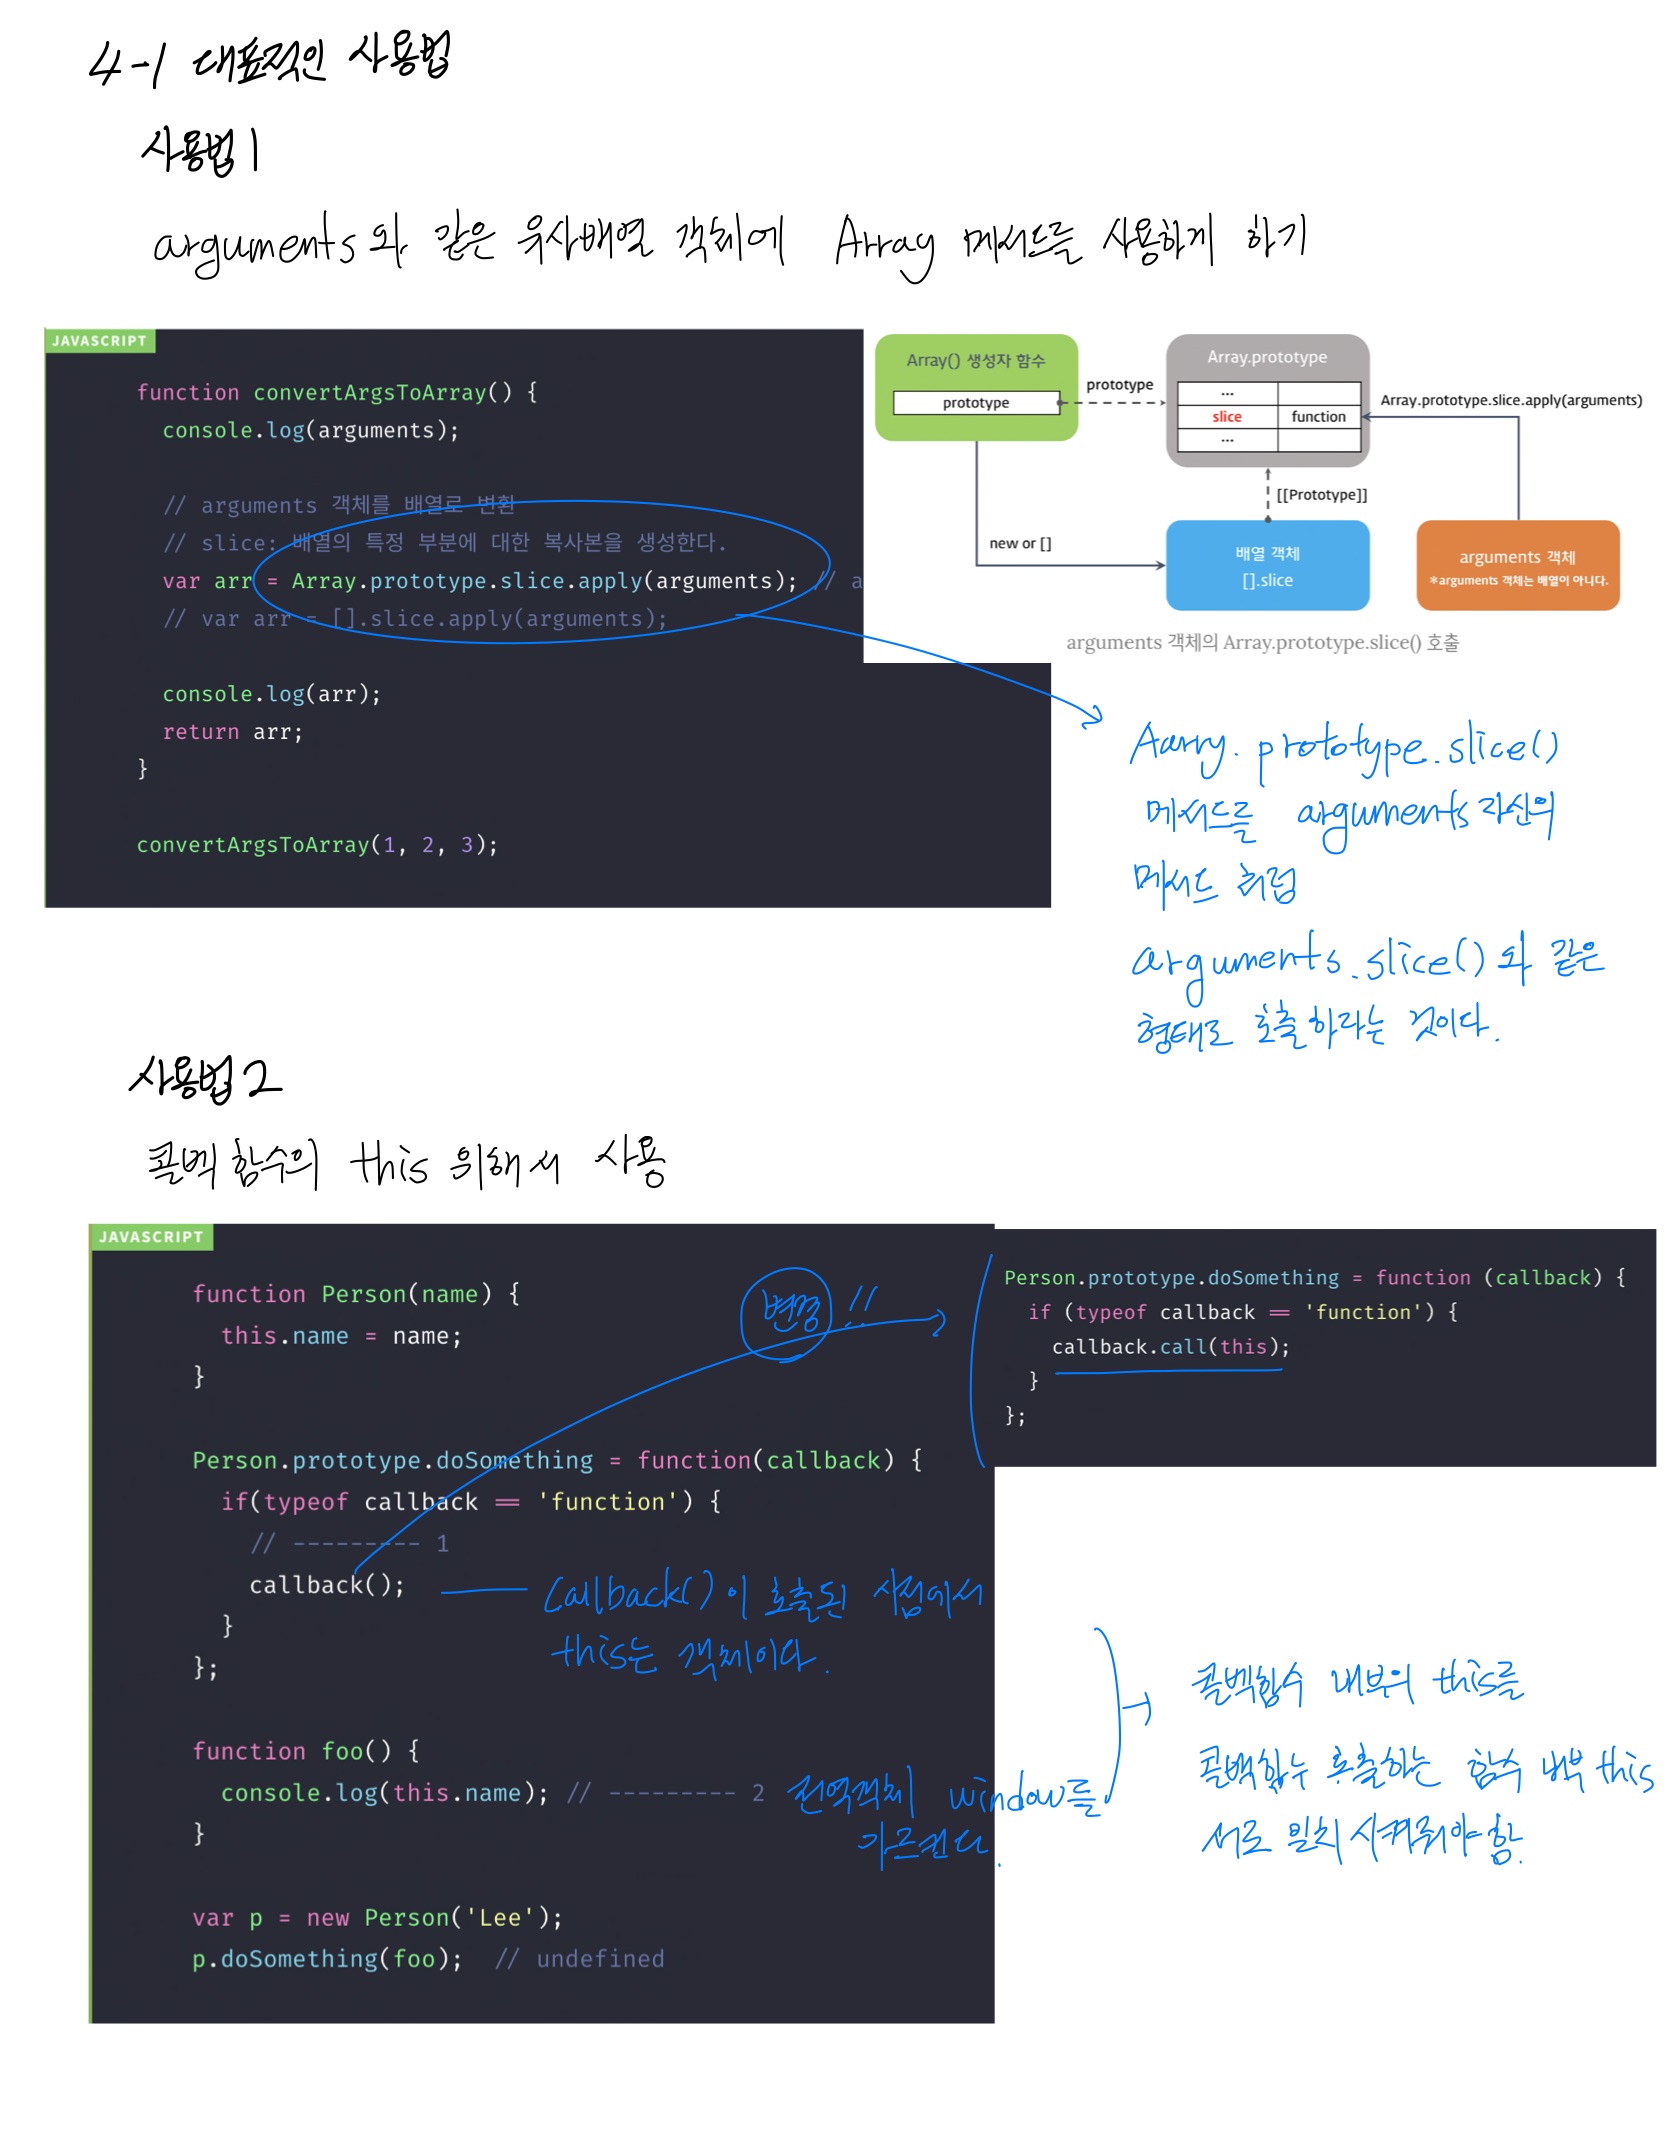 4-1 대표적인 사용법
사용법 1
arguments와 같은 유사배열 객체에 Array 메서드를 사용하게 하기
JAVASCRIPT
function convertArgsToArray() {
console.log(arguments);
// arguments 객체를 배열로 변환
// slice: 배열의 특정 부분에 대한 복사본을 생성한다.
var arr = Array.prototype.slice.apply(arguments); // a
// var arr = [].slice.apply(arguments);
console.log(arr);
return arr;
}
convertArgsToArray(1, 2, 3);
Array() 생성자 함수
prototype
prototype
Array.prototype
...
slice function
...
Array.prototype.slice.apply(arguments)
[[Prototype]]
new or []
배열 객체
[].slice
arguments 객체
*arguments 객체는 배열이 아니다.
arguments 객체의 Array.prototype.slice() 호출
Aarry.prototype.slice()
메서드를 arguments 자신의
메서드 처럼
arguments.slice()와 같은
형태로 호출하라는 것이다.
사용법 2
콜벡 함수의 this 위해서 사용
JAVASCRIPT
function Person(name) {
this.name = name;
}
Person.prototype.doSomething = function(callback) {
if(typeof callback == 'function') {
// --------- 1
callback();
}
};
function foo() {
console.log(this.name); // --------- 2
}
var p = new Person('Lee');
p.doSomething(foo); // undefined
변경!!
Person.prototype.doSomething = function (callback) {
if (typeof callback == 'function') {
callback.call(this);
}
};
Callback()이 호출된 시점에서
this는 객체이다.
전역객체 window를
가르킨다.
콜벡함수 내부의 this를
콜백함수 호출하는 함수 내부 this
서로 일치시켜줘야함.